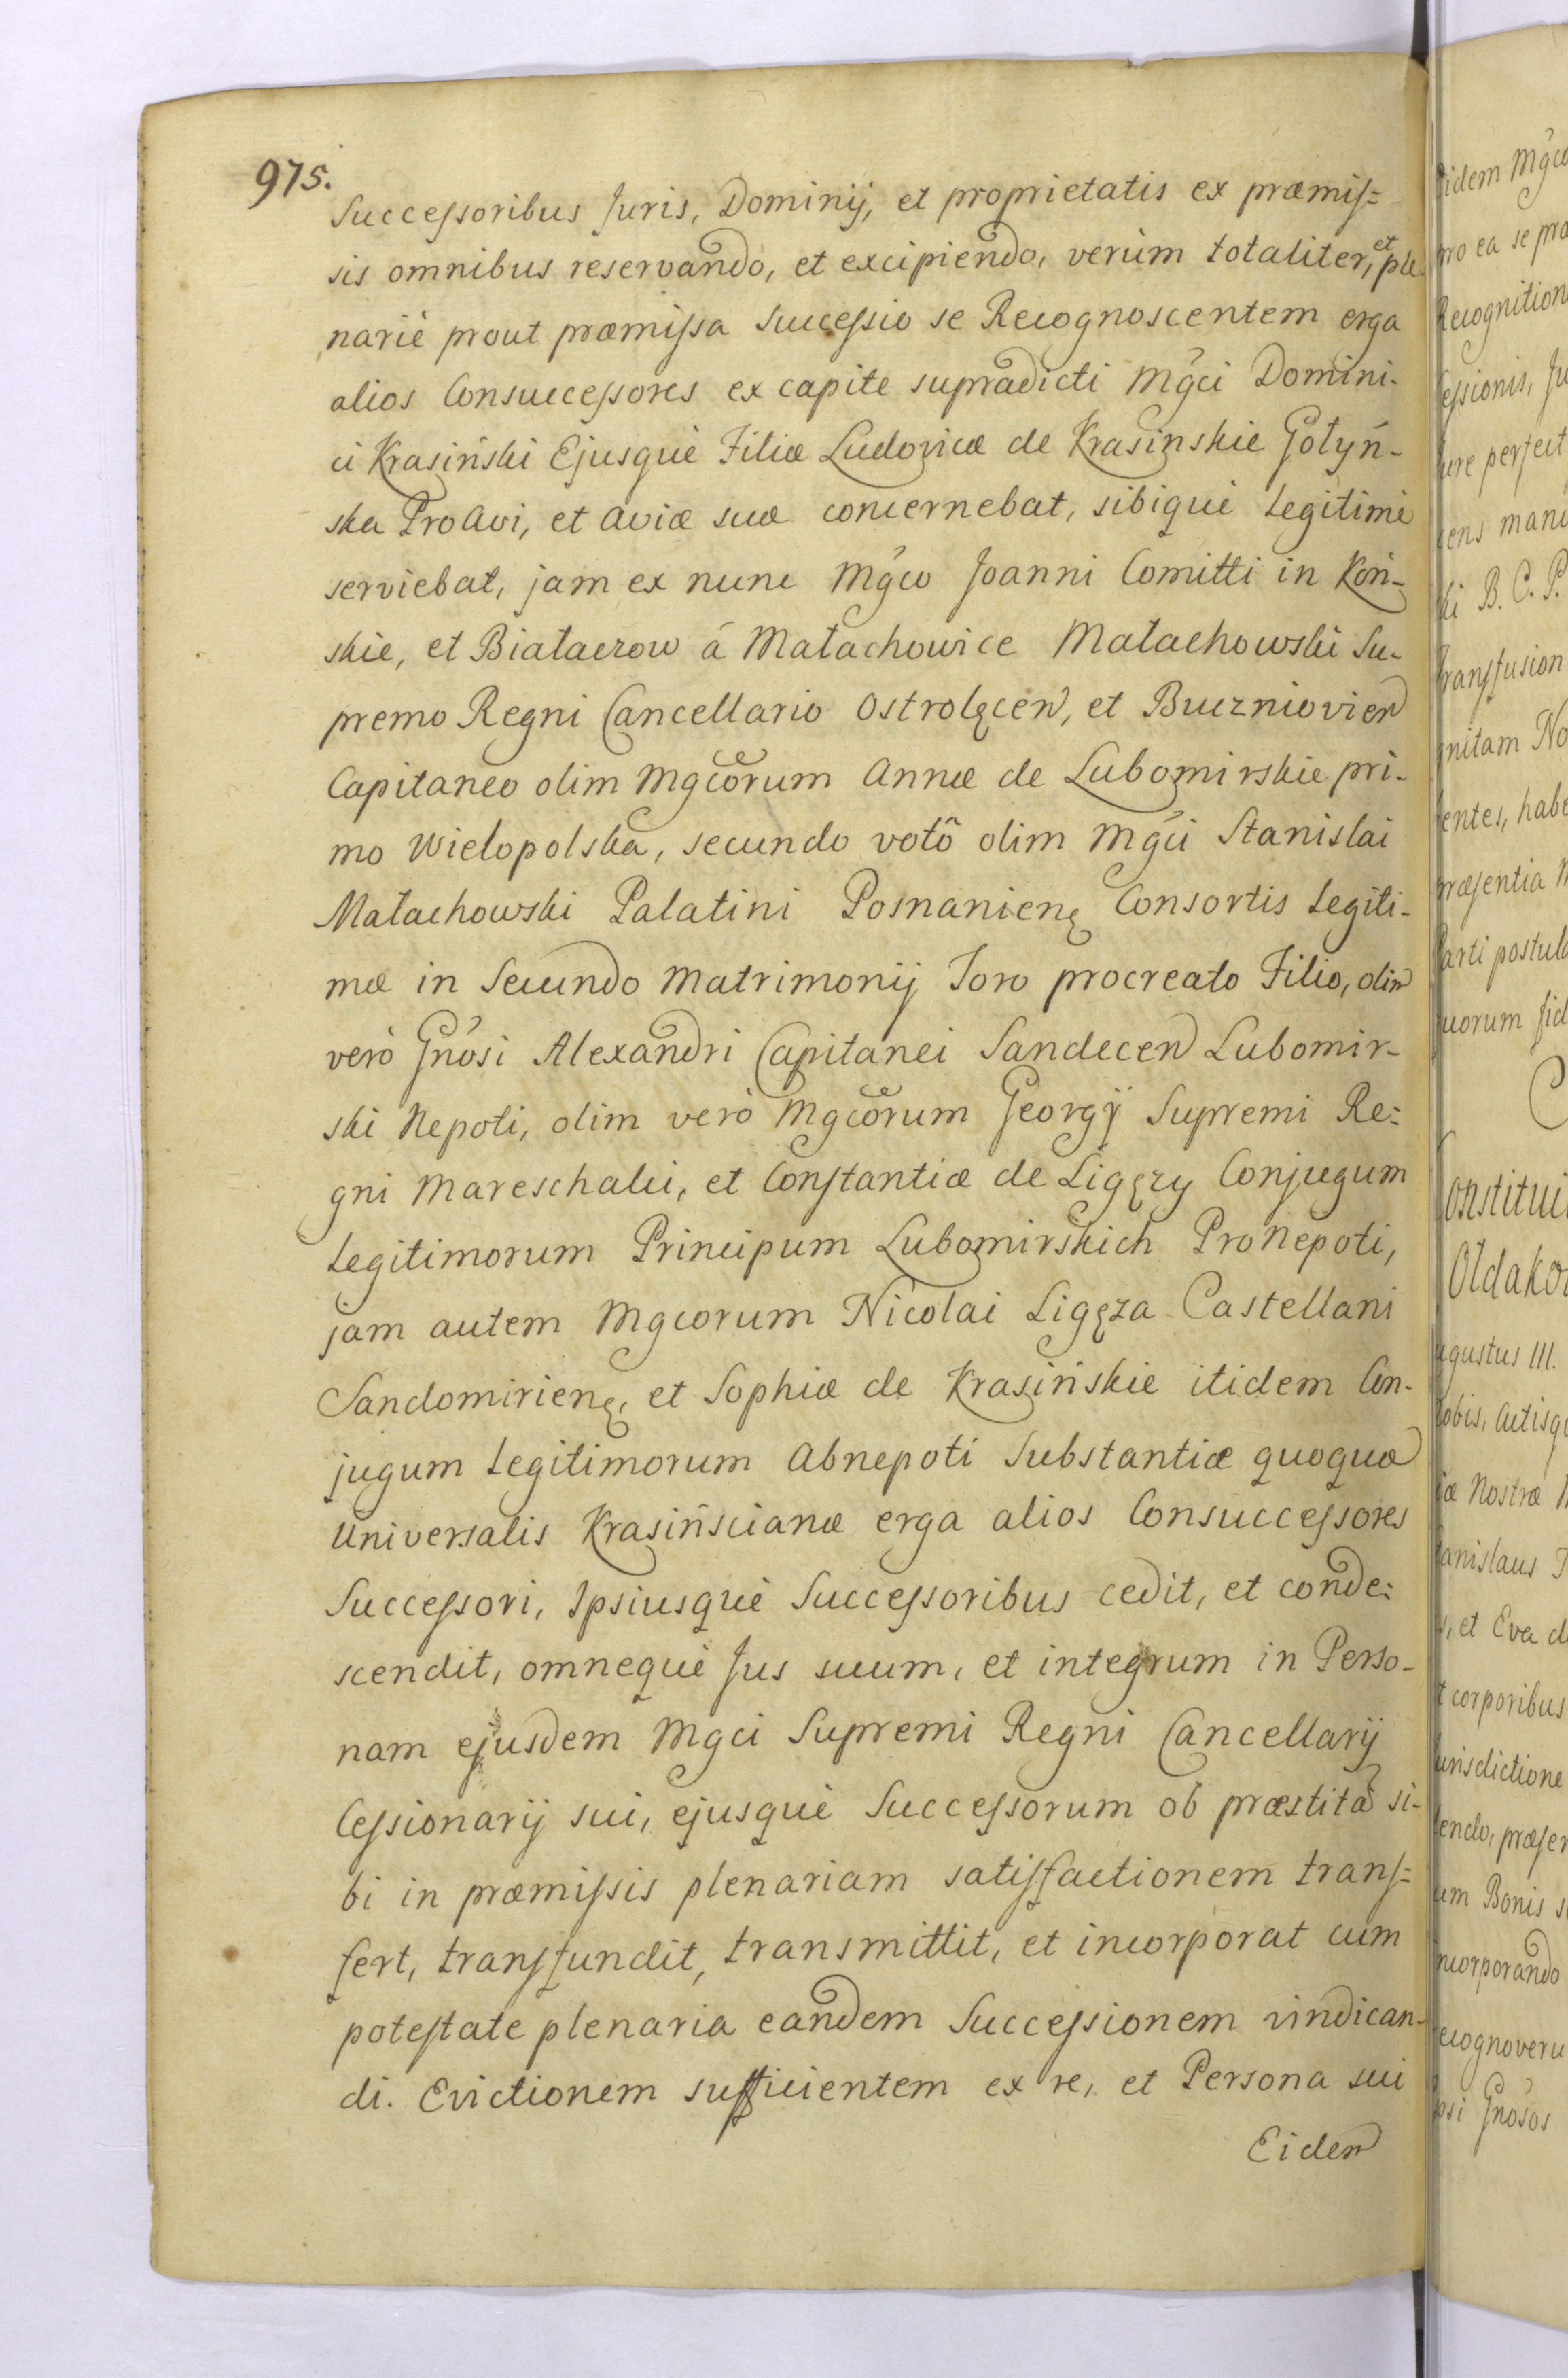 975.
Successoribus Juris, Dominij, et proprietatis ex præmis=
sis omnibus reservando, et excipiendo, verùm totaliter, et ple
nariè prout præmissa Successio se Recognoscentem erga
alios Consuccessores ex capite supradicti Mgci Domini-
ci Krasiński Ejusquè Filiæ Ludovicæ de Krasinskie Gołyń-
ska ProAvi, et Aviæ suæ concernebat, sibiquè Legitimè
serviebat, jam ex nunc Mgco Joanni Comitti in Koń-
skie, et Białaczow á Małachowice Małachowski Su-
premo Regni Cancellario Ostrolęcen, et Buczniovien
Capitaneo olim Mgcorum Annæ de Lubomirskie pri-
mo Wielopolska, secundo votô olim Mgci Stanislai
Małachowski Palatini Posnanien Consortis Legiti-
mæ in Secundo Matrimonij Toro procreato Filio, olim
verò Gnosi Alexandri Capitanei Sandecen Lubomir-
ski Nepoti, olim verò Mgcorum Georgij Supremi Re:
gni Mareschalci, et Constantiæ de Ligęzy Conjugum
Legitimorum Principum Lubomirskich ProNepoti,
jam autem Mgcorum Nicolai Ligęza Castellani
Sandomirien, et Sophiæ de Krasińskie itidem Con-
jugum Legitimorum Abnepoti Substantiæ quoquæ
Universalis Krasińscianæ erga alios Consuccessores
Successori, Ipsiusquè Successoribus cedit, et conde:
scendit, omnequè Jus suum, et integrum in Perso-
nam ejusdem Mgci Supremi Regni Cancellarij
Cessionarij sui, ejusquè Successorum ob præstitã si-
bi in præmissis plenariam satisfactionem trans=
fert, transfundit, transmittit, et incorporat cum
potestate plenaria eandem Successionem vindican-
di. Evictionem sufficientem ex re, et Persona sui
Eidem